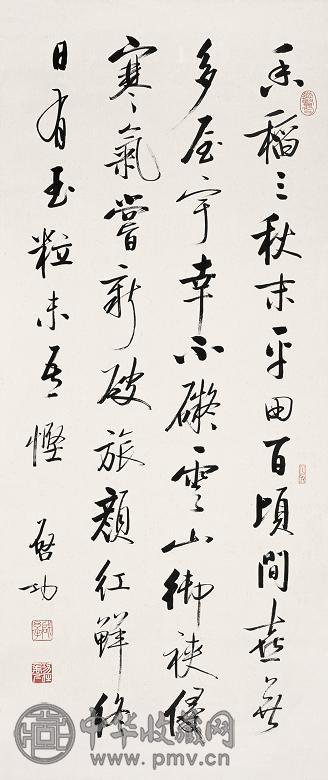 香稻三秋末平田百頃間喜無
多屋宇幸不礙雲山御裌侵
寒氣嘗新破旅顏紅鮮終
日有玉粒未吾慳
啓功
中华收藏网
www.pmv.cn